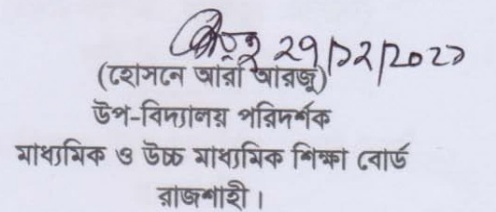 29/12/2021
(হোসনে আরা আরজু)
উপ-বিদ্যালয় পরিদর্শক
মাধ্যমিক ও উচ্চ মাধ্যমিক শিক্ষা বোর্ড
রাজশাহী।